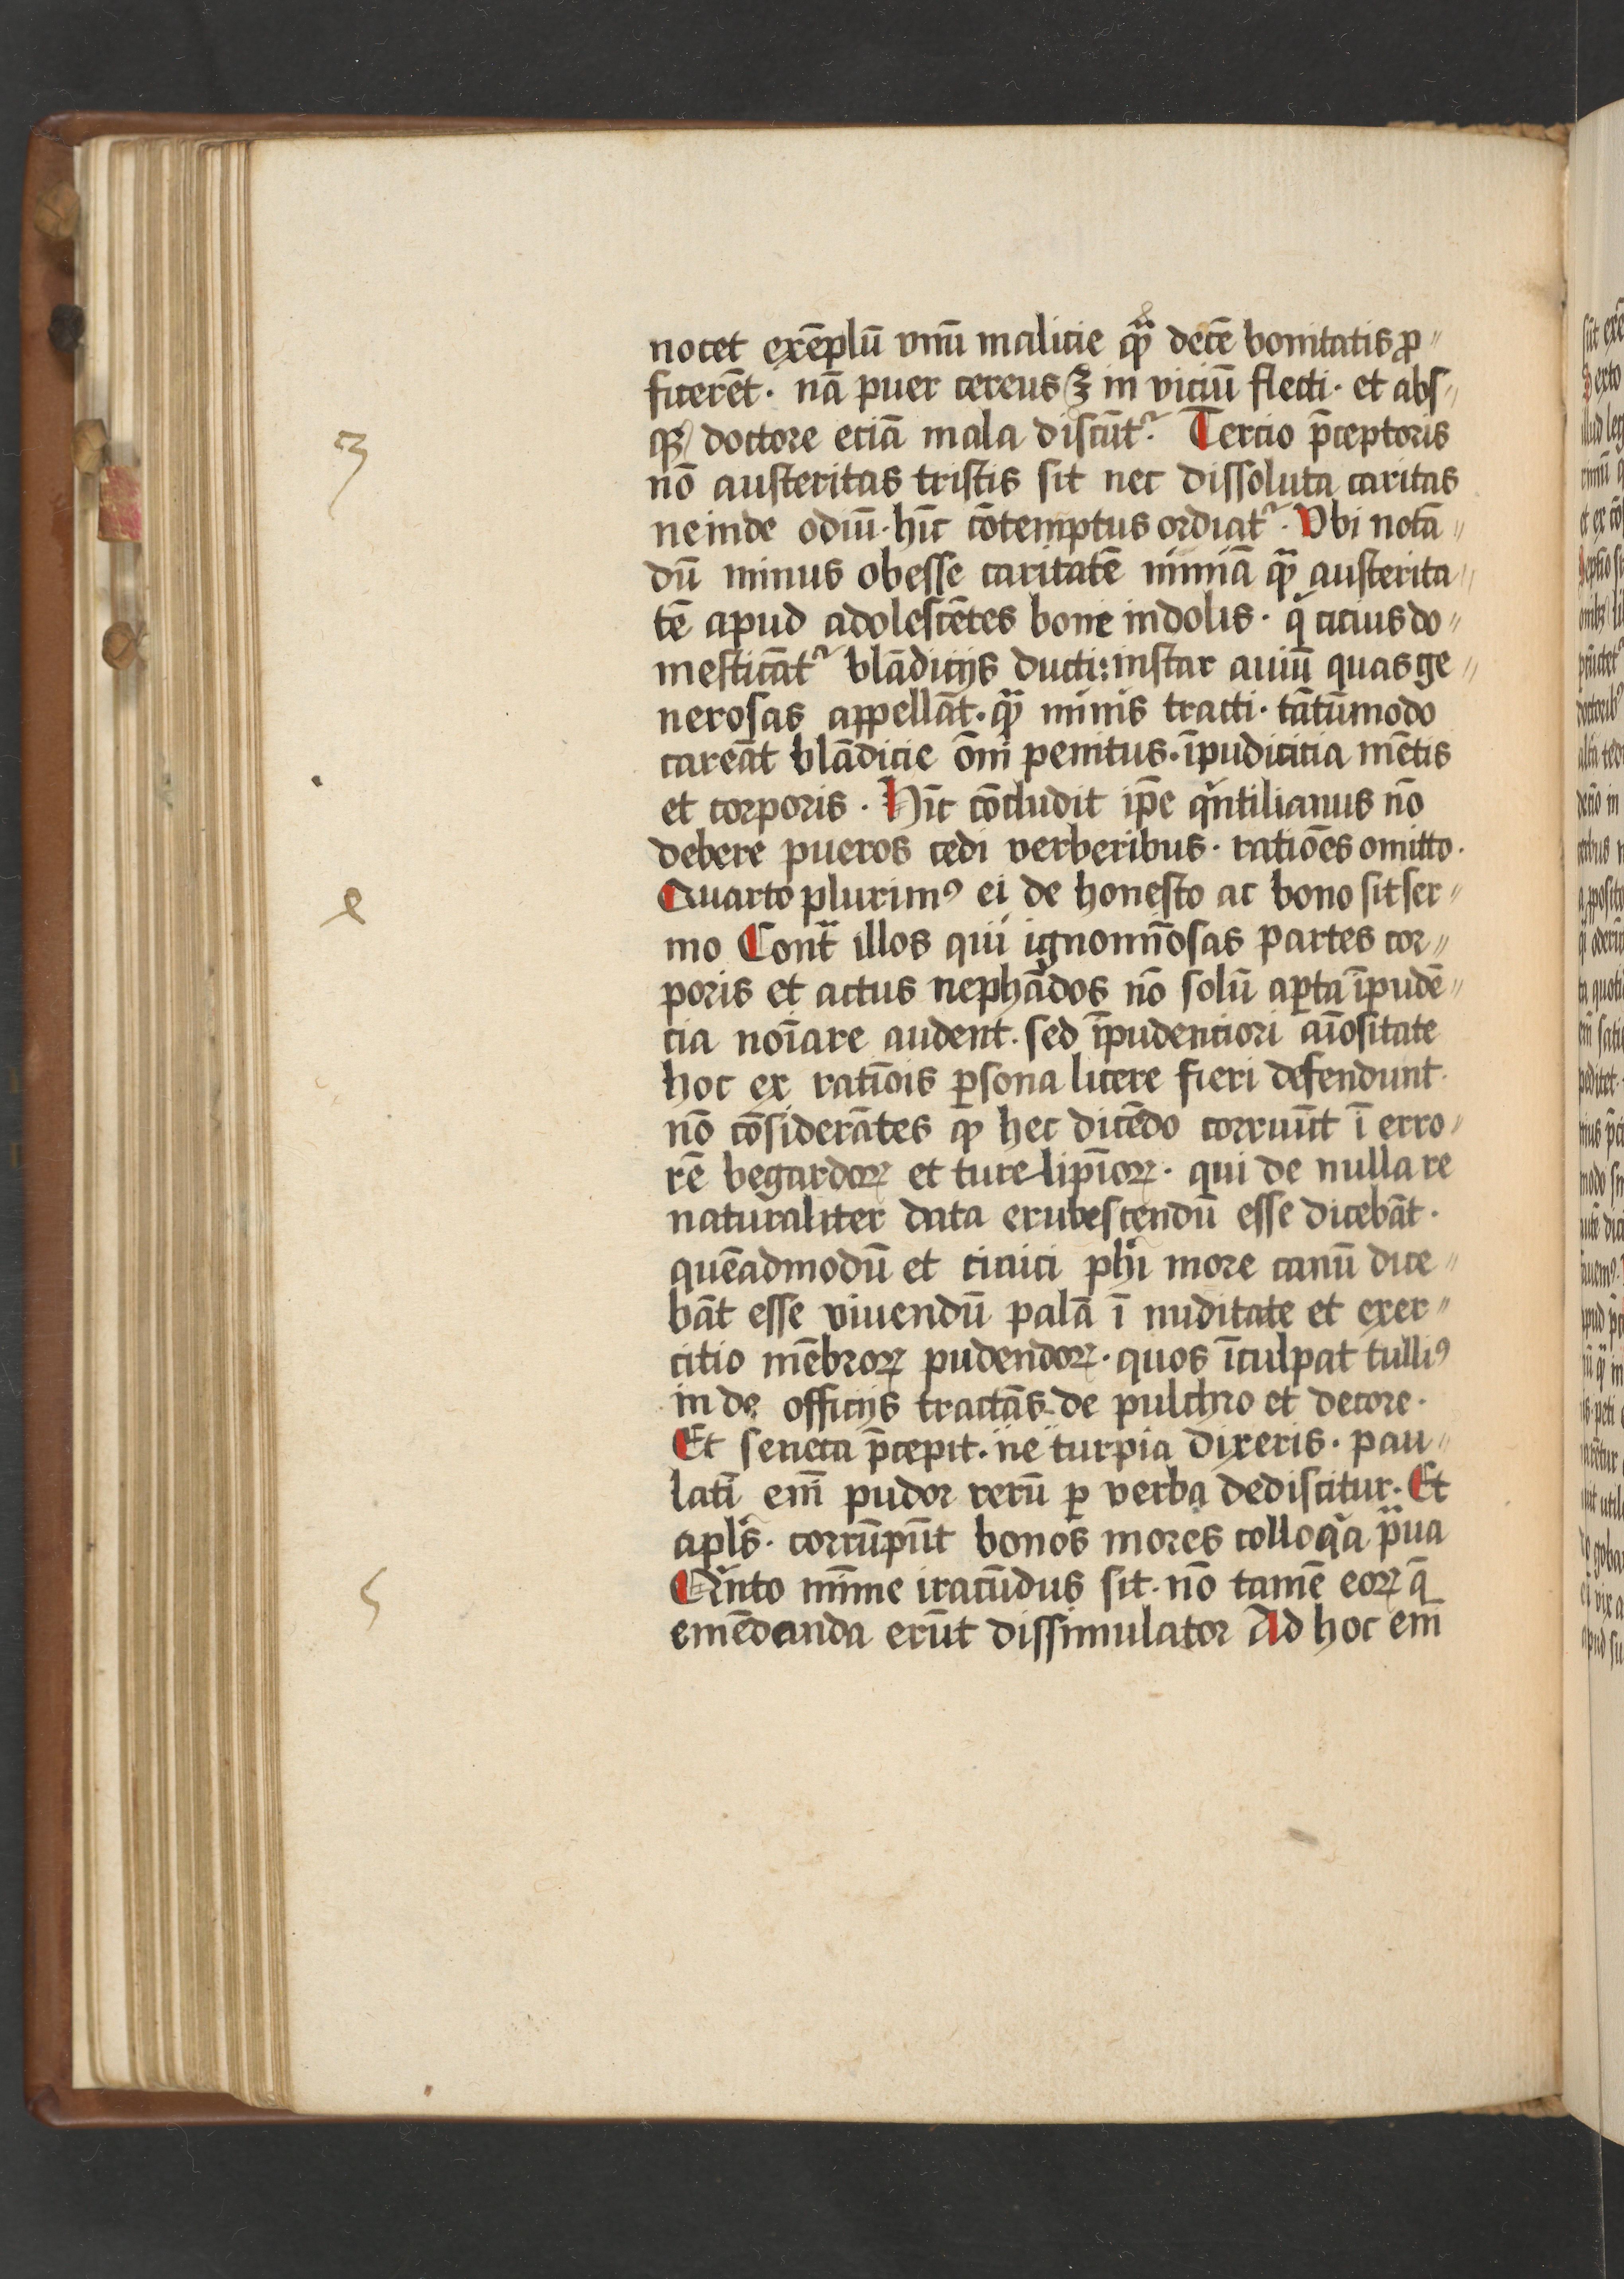 nocet exēplū vnū malicie qȝ̄ decē bonitatis ꝓ〃
ficerēt · nā puer cereus ⁊ in viciū flecti · et abs〃
qȝ doctore eciā mala discūt᷑ · Tercio p̄ceptoris
3
nō austeritas tristis sit nec dissoluta caritas
ne inde odiū · hīc cōtemptus ordiat᷑ · Vbi notā〃
dū minus obesse caritatē nimiā qȝ̄ austerita〃
tē apud adolescētes bone indolis · q̇ cicius do〃
mesticāt᷑ blādicijs ducti : instar auiū quas ge〃
nerosas appellāt · qȝ̄ minis tracti · tātūmodo
careāt blādicie ōni penitus · īpudicicia mētis
et corporis · Hīc cōcludit ip̄e qͥntilianus nō
debere pueros cedi verberibus · ratiōes omitto ·
Quarto plurimꝯ ei de honesto ac bono sit ser〃
mo Contᷓ illos qui ignomīosas partes cor〃
poris et actus nephādos nō solū aꝑta īpudē〃
cia noīare audent · sed īpudentiori aīositate
hoc ex ratīois ꝑsona licere fieri defendunt ·
nō cōsiderātes ꝙ hec dicēdo corruūt ī erro〃
rē begardoꝝ et turelipīoꝝ · qui de nulla re
naturaliter data erubescendū esse dicebāt ·
quēadmodū et cinici ph̄i more canū dice〃
bāt esse viuendū palā ī nuditate et exer〃
citio mēbroꝝ pudendoꝝ · quos īculpat tulliꝯ
in de officijs tractās de pulchro et decore ·
Et seneca p̄cepit · ne turpia dixeris · pau〃
latī em̄ pudor rerū ꝑ verba dediscitur · Et
apl̄s · corrūpūt bonos mores colloqͥa pᷓua
Qͥnto mīme iracūdus sit · nō tamē eoꝝ q̄
5
emēdanda erūt dissimulator Ad hoc em̄